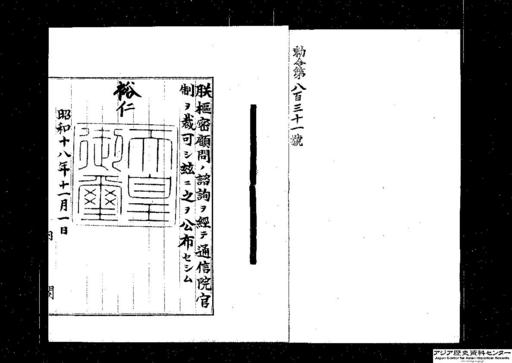 勅令第八百三十一號
朕樞密顧問ノ諮詢ヲ經テ通信院官
制ヲ裁可シ玆ニ之ヲ公布セシム
裕仁
天皇
御璽
昭和十八年十一月一日
内閣
アジア歴史資料センター
Japan Center for Asian Historical Records